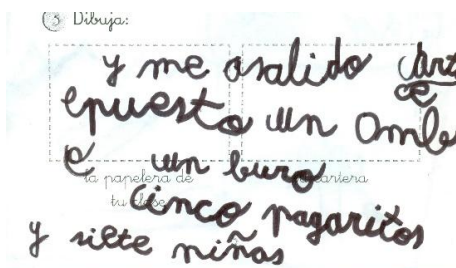 3 Dibuja:
y me asalido
ce
epuesto un omb
e un buro
la papelera de tu cartera
tu clase
cinco pagaritos
y siete niñas